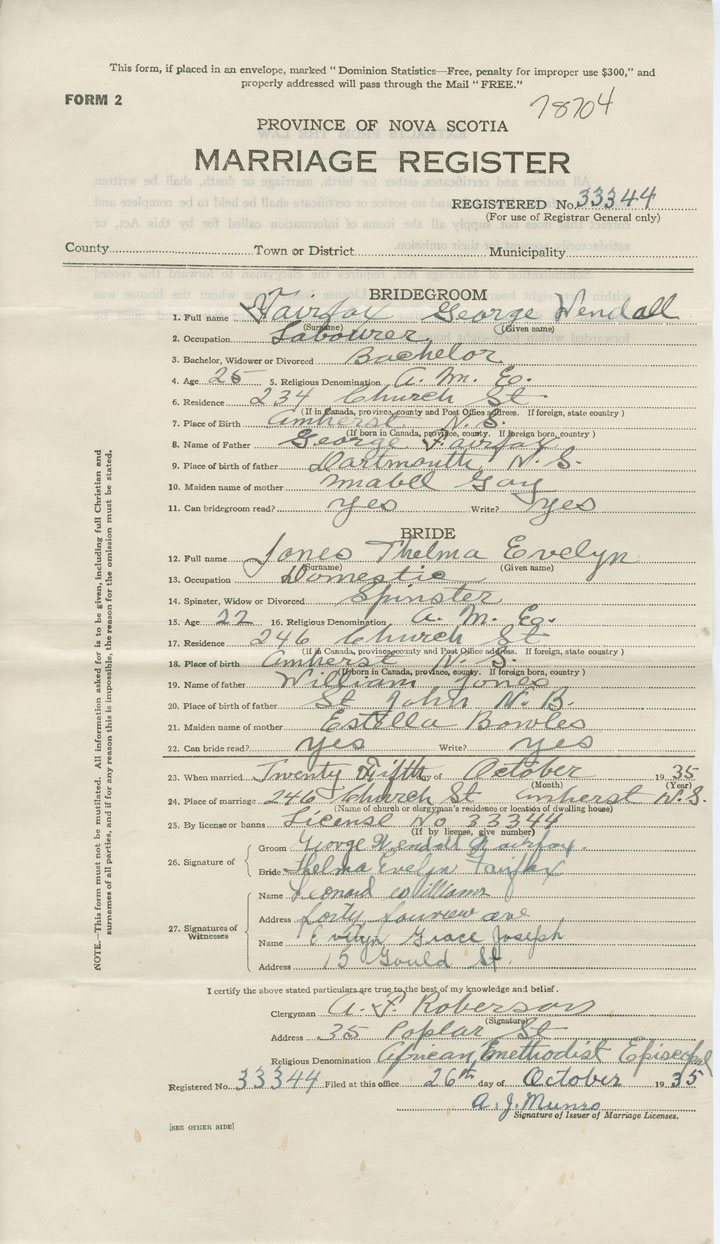 This form, if placed in an envelope, marked "Dominion Statistics—Free, penalty for improper use $300," and
properly addressed will pass through the Mail "FREE."
FORM 2
78704
PROVINCE OF NOVA SCOTIA
MARRIAGE REGISTER
REGISTERED No. 33344
(For use of Registrar General only)
County Town or District Municipality
BRIDEGROOM
1. Full name Fairfax George Wendall
(Surname) (Given name)
2. Occupation Labourer
3. Bachelor, Widower or Divorced Bachelor
4. Age 25 5. Religious Denomination A. M. Ep.
6. Residence 234 Church St
(If in Canada, province, county and Post Office address. If foreign, state country)
7. Place of Birth Amherst N. S.
(If born in Canada, province, county. If foreign born, country)
8. Name of Father George Fairfax
9. Place of birth of father Dartmouth N. S.
10. Maiden name of mother Mabell Gay
11. Can bridegroom read? yes Write? yes
BRIDE
12. Full name Jones Thelma Evelyn
(Surname) (Given name)
13. Occupation Domestic
14. Spinster, Widow or Divorced Spinster
15. Age 22 16. Religious Denomination A. M. Ep.
17. Residence 246 Church St
(If in Canada, province, county and Post Office address. If foreign, state country)
18. Place of birth Amherst N. S.
(If born in Canada, province, county. If foreign born, country)
19. Name of father William Jones
20. Place of birth of father St John N. B.
21. Maiden name of mother Estella Bowles
22. Can bride read? yes Write? yes
23. When married Twenty Fifth day of October 1935
(Month) (Year)
24. Place of marriage 246 Church St Amherst N.S.
(Name of church or clergyman's residence or location of dwelling house)
25. By license or banns License No 33344
(If by license, give number)
26. Signature of
Groom George Wendall Fairfax.
Bride Thelma Evelyn Fairfax
27. Signatures of Witnesses
Name Leonard Williams
Address forty ave
Name Evelyn Grace Joseph
Address 15 Gould St.
I certify the above stated particulars are true to the best of my knowledge and belief.
Clergyman A. F. Roberson
(Signature)
Address 35 Poplar St
Religious Denomination African Methodist Episcopal
Registered No. 33344 Filed at this office 26th day of October 1935
A. J. Munro
Signature of Issuer of Marriage Licenses.
[SEE OTHER SIDE]
NOTE.—This form must not be mutilated. All information asked for is to be given, including full Christian and
surnames of all parties, and if for any reason this is impossible, the reason for the omission must be stated.